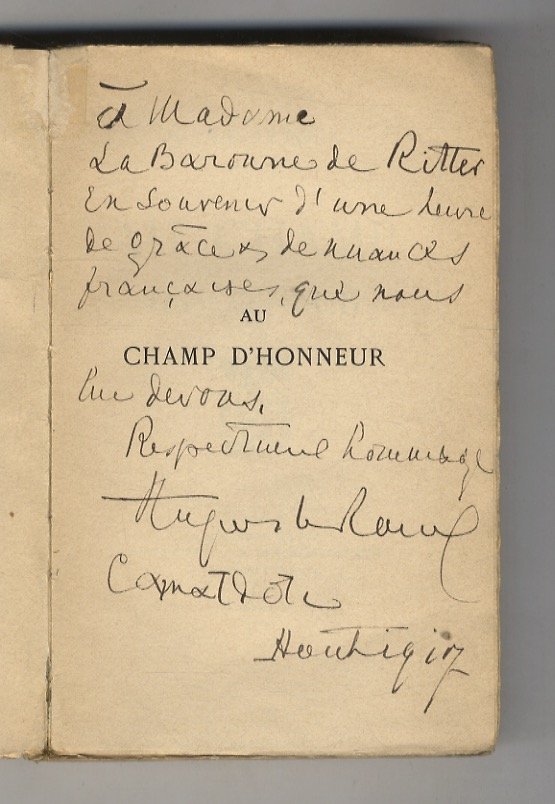 à Madame
La Baronne de Ritter
En souvenir d'une heure
de grâce & de nuances
françaises, que nous
AU
CHAMP D'HONNEUR
lui devons.
Respectueux hommage
Hugues le Roux